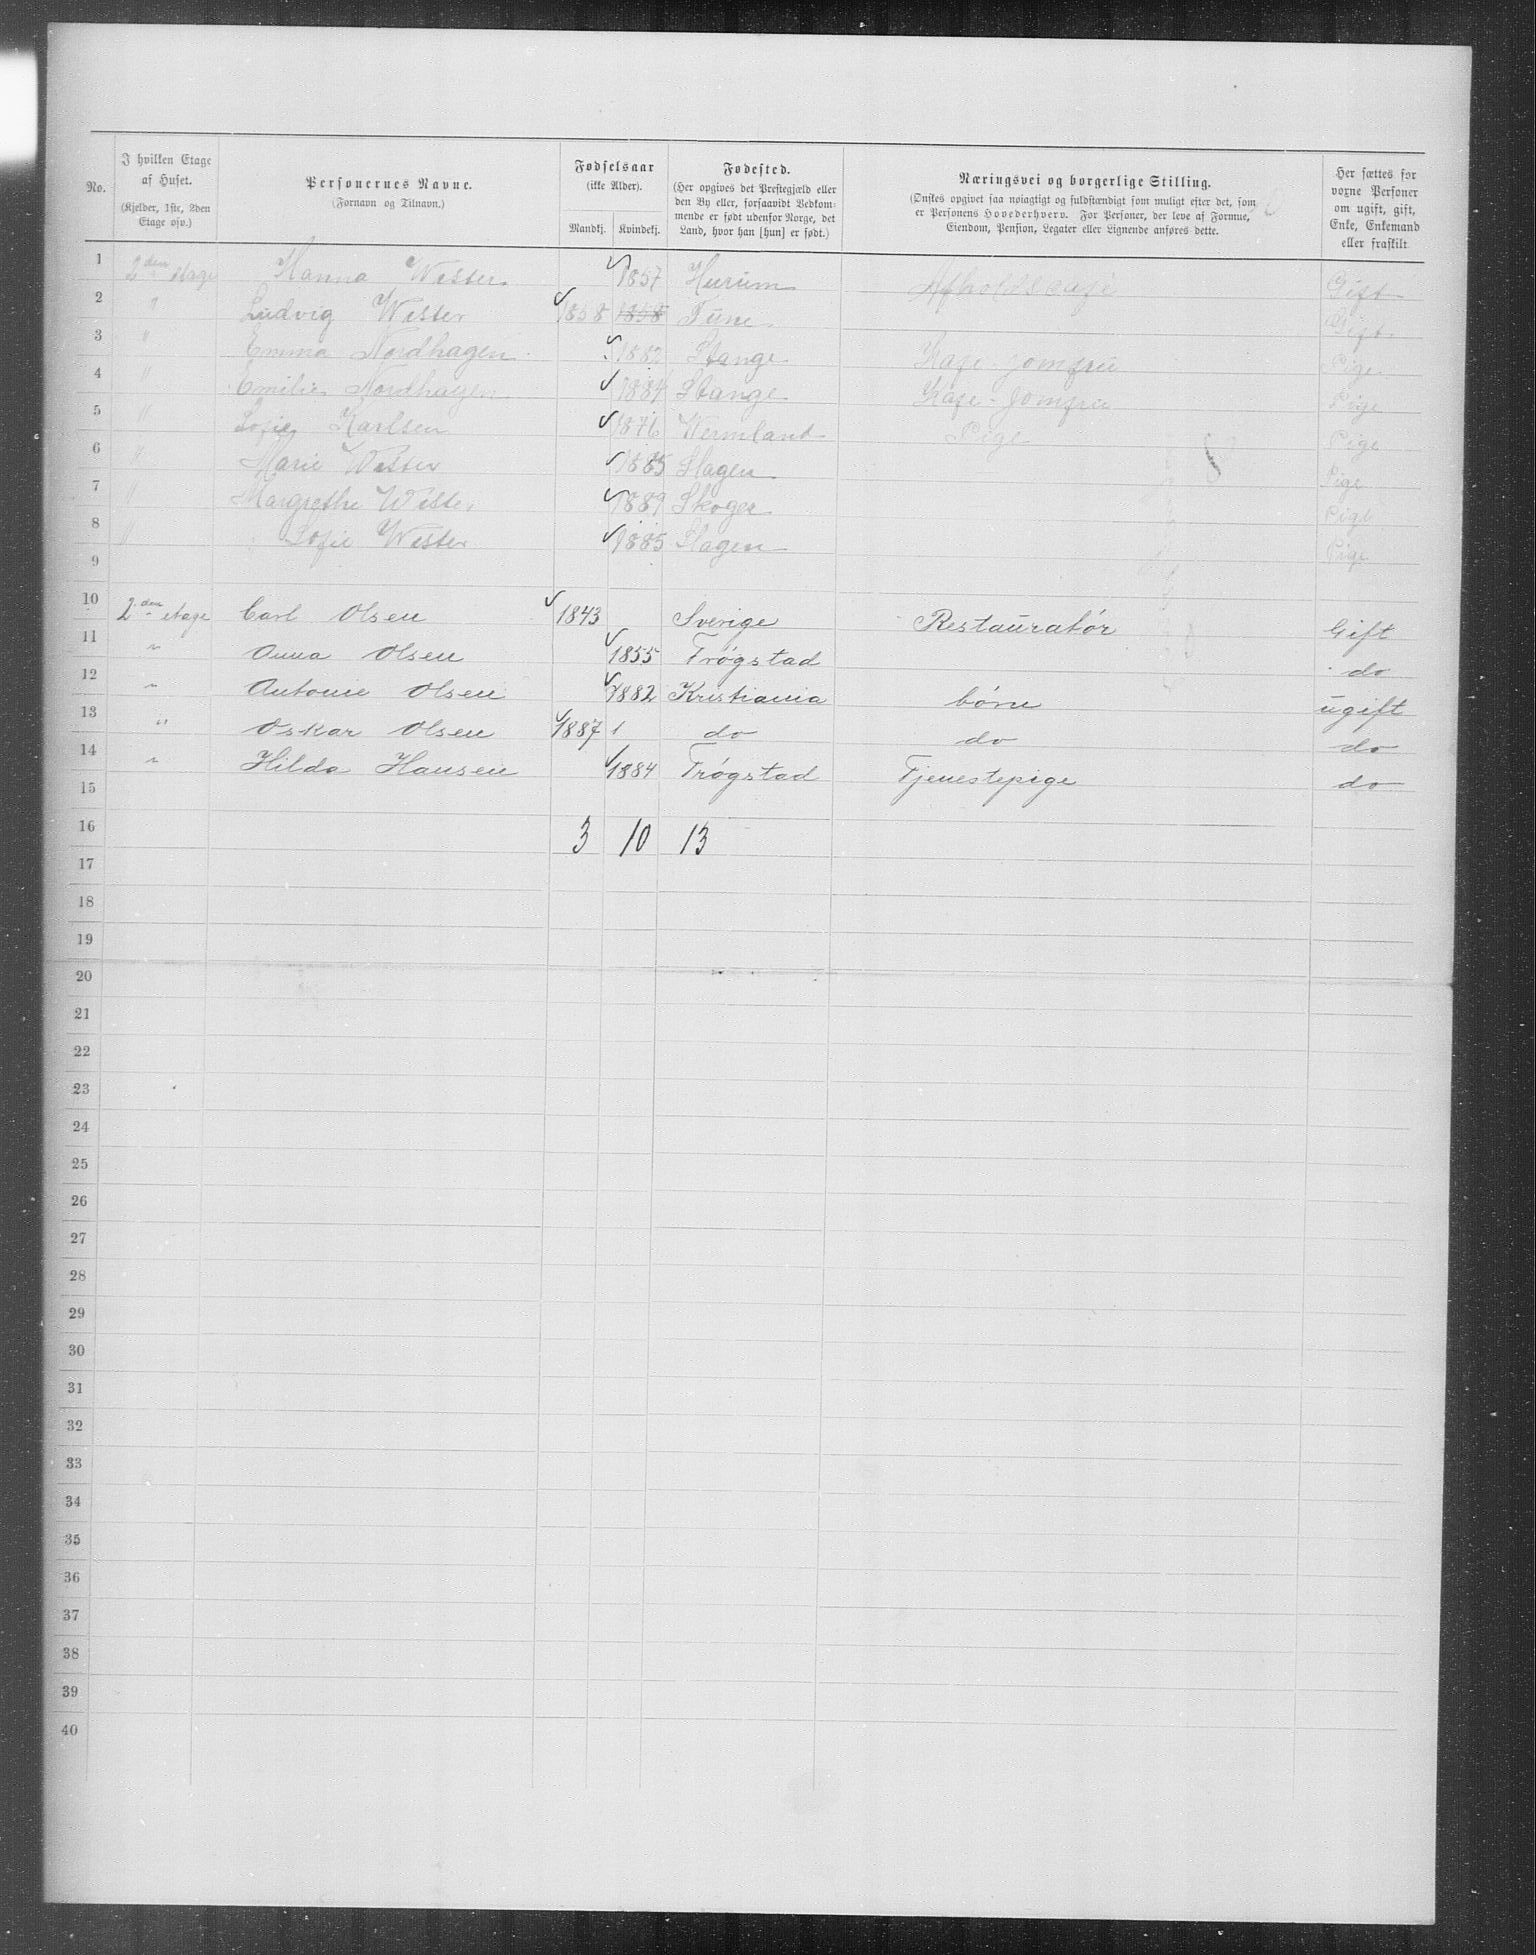 No. I hvilken Etage af Huset. (Kjelder, 1ste, 2den Etage osv.) Personernes Navne. (Fornavn og Tilnavn.) Fødselsaar (ikke Alder). Mandkj. Kvindekj. Fødested. (Her opgives det Prestegjæld eller den By eller, forsaavidt Vedkommende er født udenfor Norge, det Land, hvor han [hun] er født.) Næringsvei og borgerlige Stilling. (Ønskes opgivet saa nøiagtigt og fuldstændigt som muligt efter det, som er Personens Hovederhverv. For Personer, der leve af Formue, Eiendom, Pension, Legater eller Lignende anføres dette. Her sættes for voxne Personer om ugift, gift, Enke, Enkemand eller fraskilt
1 2den etage Hanna Wester 1857 Hurum Afholdscafé Gift
2 " Ludvig Wester 1858 1858 Tune Gift
3 " Emma Nordhagen 1882 Stange Kafe-jomfru Pige
4 " Emilie Nordhagen 1884 Stange Kafe-jomfru Pige
5 " Sofie Karlsen 1876 Wermland Pige Pige
6 " Marie Wester 1885 Slagen Pige
7 " Margrethe Wester 1889 Skoger Pige
8 " Sofie Wester 1885 Slagen Pige
9
10 2den etage Carl Olsen 1843 Sverige Restauratør Gift
11 " Anna Olsen 1855 Trøgstad do
12 " Antonie Olsen 1882 Kristiania børn ugift
13 " Oskar Olsen 1887 do do do
14 " Hilda Hansen 1884 Trøgstad Tjenestepige do
15
16 3 10 13
17
18
19
20
21
22
23
24
25
26
27
28
29
30
31
32
33
34
35
36
37
38
39
40